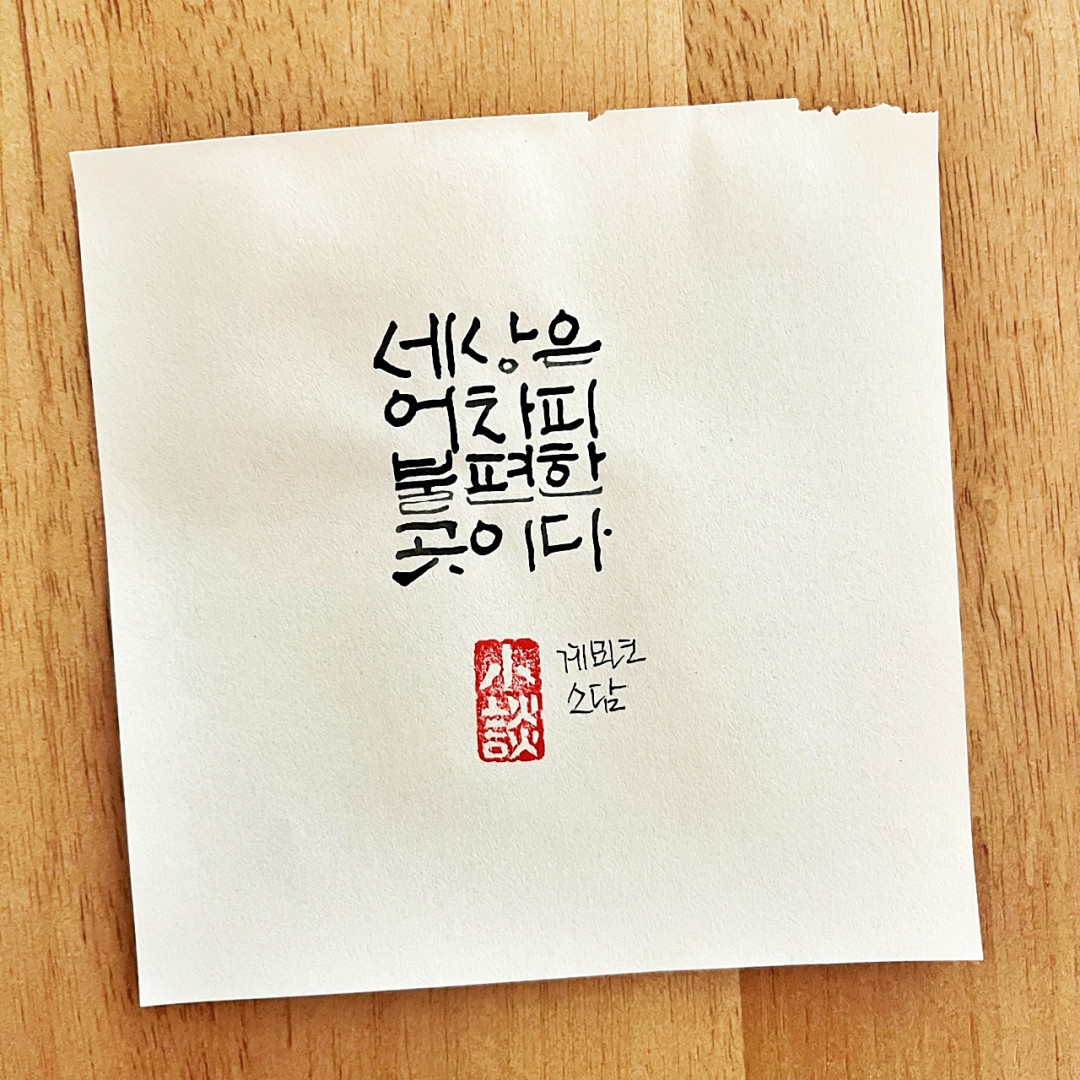 세상은
어차피
불편한
곳이다
小談
계묘년
소담